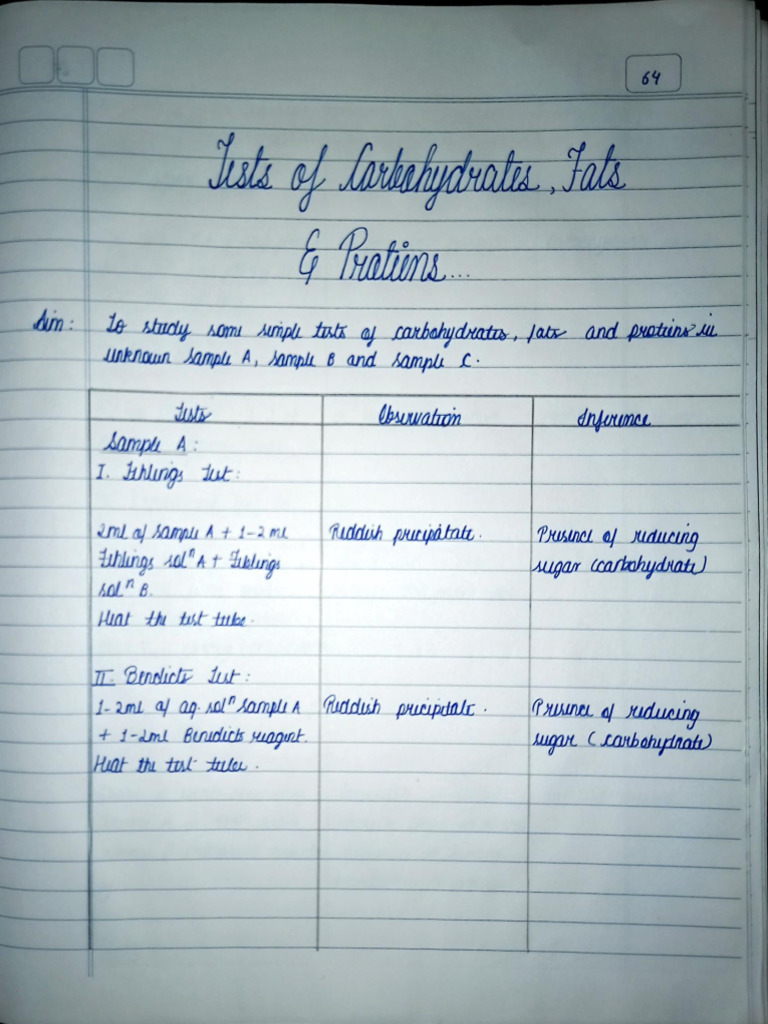 64
Tests of Carbohydrates, Fats
& Protiens...
Aim: To study some simple tests of carbohydrates, fats and protiens in
unknown sample A, sample B and sample C.
Tests Observation Inference
Sample A:
I. Fehlings Test:
2ml of sample A + 1-2 ml Reddish precipitate. Presence of reducing
Fehlings solⁿ A + Fehlings sugar (carbohydrate)
solⁿ B.
Heat the test tube.
II. Bendicts Test:
1-2ml of aq. solⁿ sample A Reddish precipitate. Presence of reducing
+ 1-2ml Benedicts reagent. sugar (carbohydrate)
Heat the test tube.